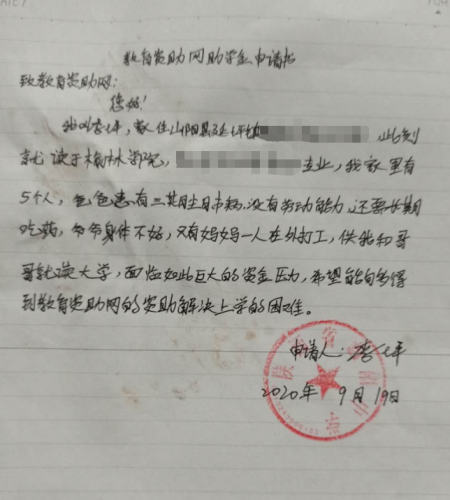 教育资助网助学金申请书
致教育资助网:
您好!
我叫李 平,家住山阳县延坪镇 ,此刻
就读于榆林学院, 专业,我家里有
5个人,爸爸患有 病,没有劳动能力,还要长期
吃药,爷爷身体不好,只有妈妈一人在外打工,供我和哥
哥就读大学,面临如此巨大的资金压力,希望能够得
到教育资助网的资助解决上学的困难。
申请人:李 平
2020年9月19日
陕 省